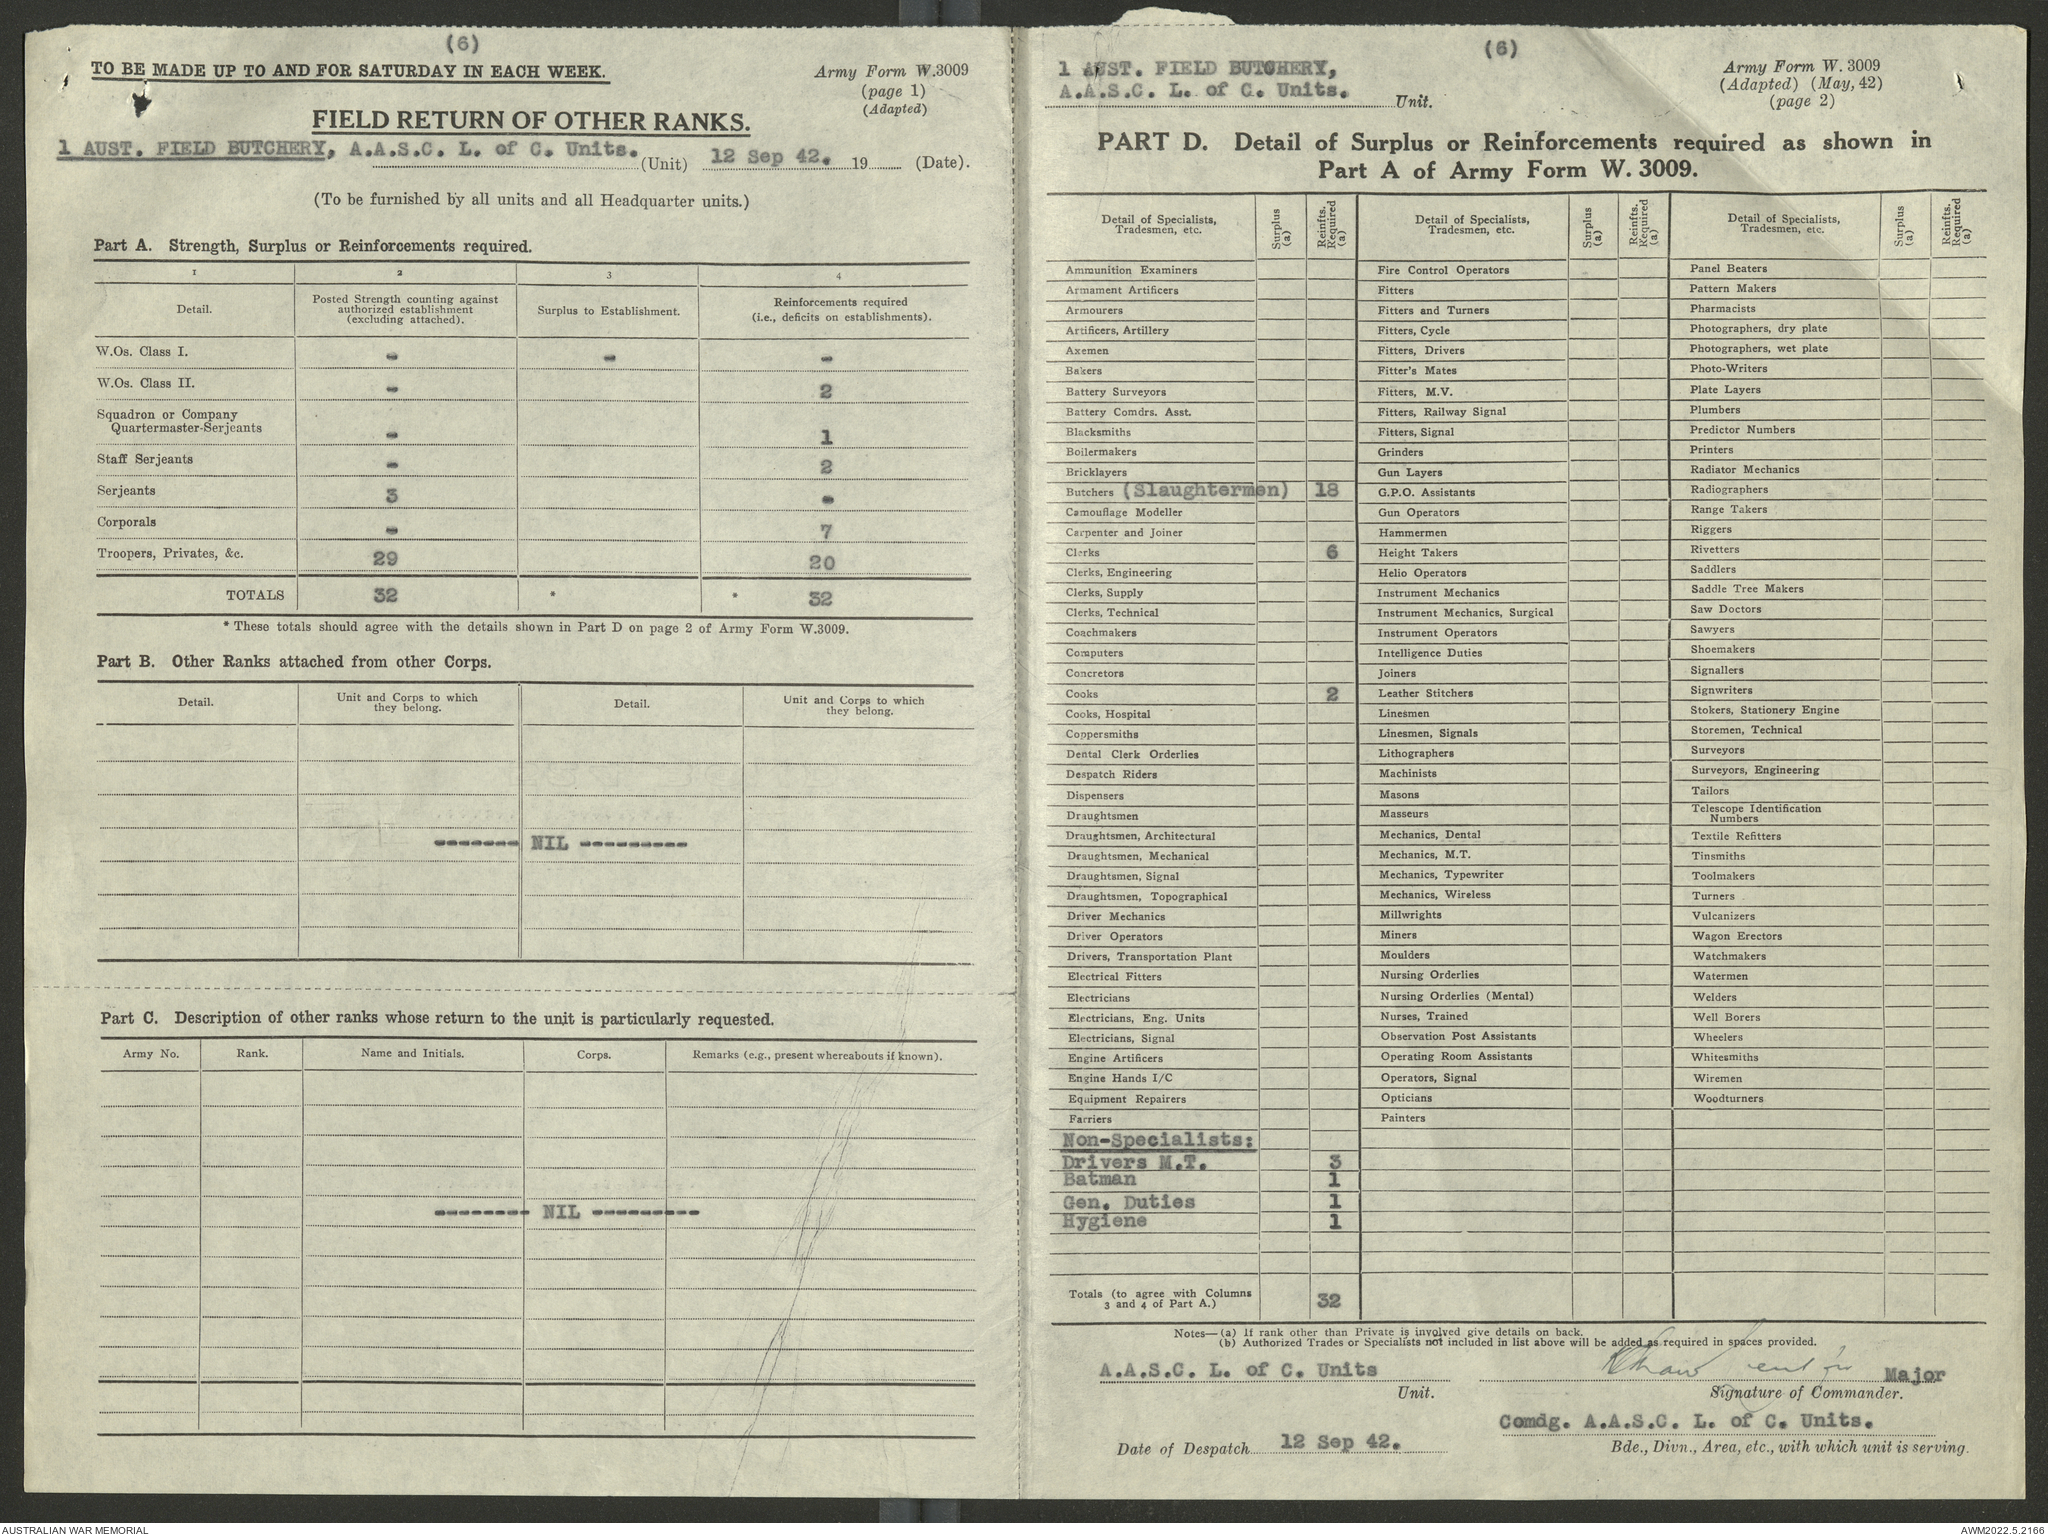 (6)
TO BE MADE UP TO AND FOR SATURDAY IN EACH WEEK.
Army Form W.3009
(page 1)
(Adapted)
FIELD RETURN OF OTHER RANKS.
1 AUST. FIELD BUTCHERY, A.A.S.C. L. of C. Units. (Unit) 12 Sep 42. 19 (Date).
(To be furnished by all units and all Headquarter units.)
Part A. Strength, Surplus or Reinforcements required.
1 2 3 4
Detail. Posted Strength counting against authorized establishment (excluding attached). Surplus to Establishment. Reinforcements required (i.e., deficits on establishments).
W.Os. Class I. - - -
W.Os. Class II. - 2
Squadron or Company
Quartermaster-Serjeants - 1
Staff Serjeants - 2
Serjeants 3 -
Corporals - 7
Troopers, Privates, &c. 29 20
TOTALS 32 * * 32
* These totals should agree with the details shown in Part D on page 2 of Army Form W.3009.
Part B. Other Ranks attached from other Corps.
Detail. Unit and Corps to which they belong. Detail. Unit and Corps to which they belong.
------- NIL ---------
Part C. Description of other ranks whose return to the unit is particularly requested.
Army No. Rank. Name and Initials. Corps. Remarks (e.g., present whereabouts if known).
-------- NIL ---------
(6)
1 AUST. FIELD BUTCHERY,
A.A.S.C. L. of C. Units. Unit.
Army Form W. 3009
(Adapted) (May, 42)
(page 2)
PART D. Detail of Surplus or Reinforcements required as shown in
Part A of Army Form W. 3009.
Detail of Specialists, Tradesmen, etc. Surplus (a) Reinfts. Required (a)
Ammunition Examiners
Armament Artificers
Armourers
Artificers, Artillery
Axemen
Bakers
Battery Surveyors
Battery Comdrs. Asst.
Blacksmiths
Boilermakers
Bricklayers
Butchers (Slaughtermen) 18
Camouflage Modeller
Carpenter and Joiner
Clerks 6
Clerks, Engineering
Clerks, Supply
Clerks, Technical
Coachmakers
Computers
Concretors
Cooks 2
Cooks, Hospital
Coppersmiths
Dental Clerk Orderlies
Despatch Riders
Dispensers
Draughtsmen
Draughtsmen, Architectural
Draughtsmen, Mechanical
Draughtsmen, Signal
Draughtsmen, Topographical
Driver Mechanics
Driver Operators
Drivers, Transportation Plant
Electrical Fitters
Electricians
Electricians, Eng. Units
Electricians, Signal
Engine Artificers
Engine Hands I/C
Equipment Repairers
Farriers
Non-Specialists:
Drivers M.T. 3
Batman 1
Gen. Duties 1
Hygiene 1
Totals (to agree with Columns
3 and 4 of Part A.) 32
Detail of Specialists, Tradesmen, etc. Surplus (a) Reinfts. Required (a)
Fire Control Operators
Fitters
Fitters and Turners
Fitters, Cycle
Fitters, Drivers
Fitter's Mates
Fitters, M.V.
Fitters, Railway Signal
Fitters, Signal
Grinders
Gun Layers
G.P.O. Assistants
Gun Operators
Hammermen
Height Takers
Helio Operators
Instrument Mechanics
Instrument Mechanics, Surgical
Instrument Operators
Intelligence Duties
Joiners
Leather Stitchers
Linesmen
Linesmen, Signals
Lithographers
Machinists
Masons
Masseurs
Mechanics, Dental
Mechanics, M.T.
Mechanics, Typewriter
Mechanics, Wireless
Millwrights
Miners
Moulders
Nursing Orderlies
Nursing Orderlies (Mental)
Nurses, Trained
Observation Post Assistants
Operating Room Assistants
Operators, Signal
Opticians
Painters
Detail of Specialists, Tradesmen, etc. Surplus (a) Reinfts. Required (a)
Panel Beaters
Pattern Makers
Pharmacists
Photographers, dry plate
Photographers, wet plate
Photo-Writers
Plate Layers
Plumbers
Predictor Numbers
Printers
Radiator Mechanics
Radiographers
Range Takers
Riggers
Rivetters
Saddlers
Saddle Tree Makers
Saw Doctors
Sawyers
Shoemakers
Signallers
Signwriters
Stokers, Stationery Engine
Storemen, Technical
Surveyors
Surveyors, Engineering
Tailors
Telescope Identification
Numbers
Textile Refitters
Tinsmiths
Toolmakers
Turners
Vulcanizers
Wagon Erectors
Watchmakers
Watermen
Welders
Well Borers
Wheelers
Whitesmiths
Wiremen
Woodturners
Notes—(a) If rank other than Private is involved give details on back.
(b) Authorized Trades or Specialists not included in list above will be added as required in spaces provided.
A.A.S.C. L. of C. Units
Unit.
Major
Signature of Commander.
Comdg. A.A.S.C. L. of C. Units.
Date of Despatch 12 Sep 42.
Bde., Divn., Area, etc., with which unit is serving.
AUSTRALIAN WAR MEMORIAL
AWM2022.5.2166